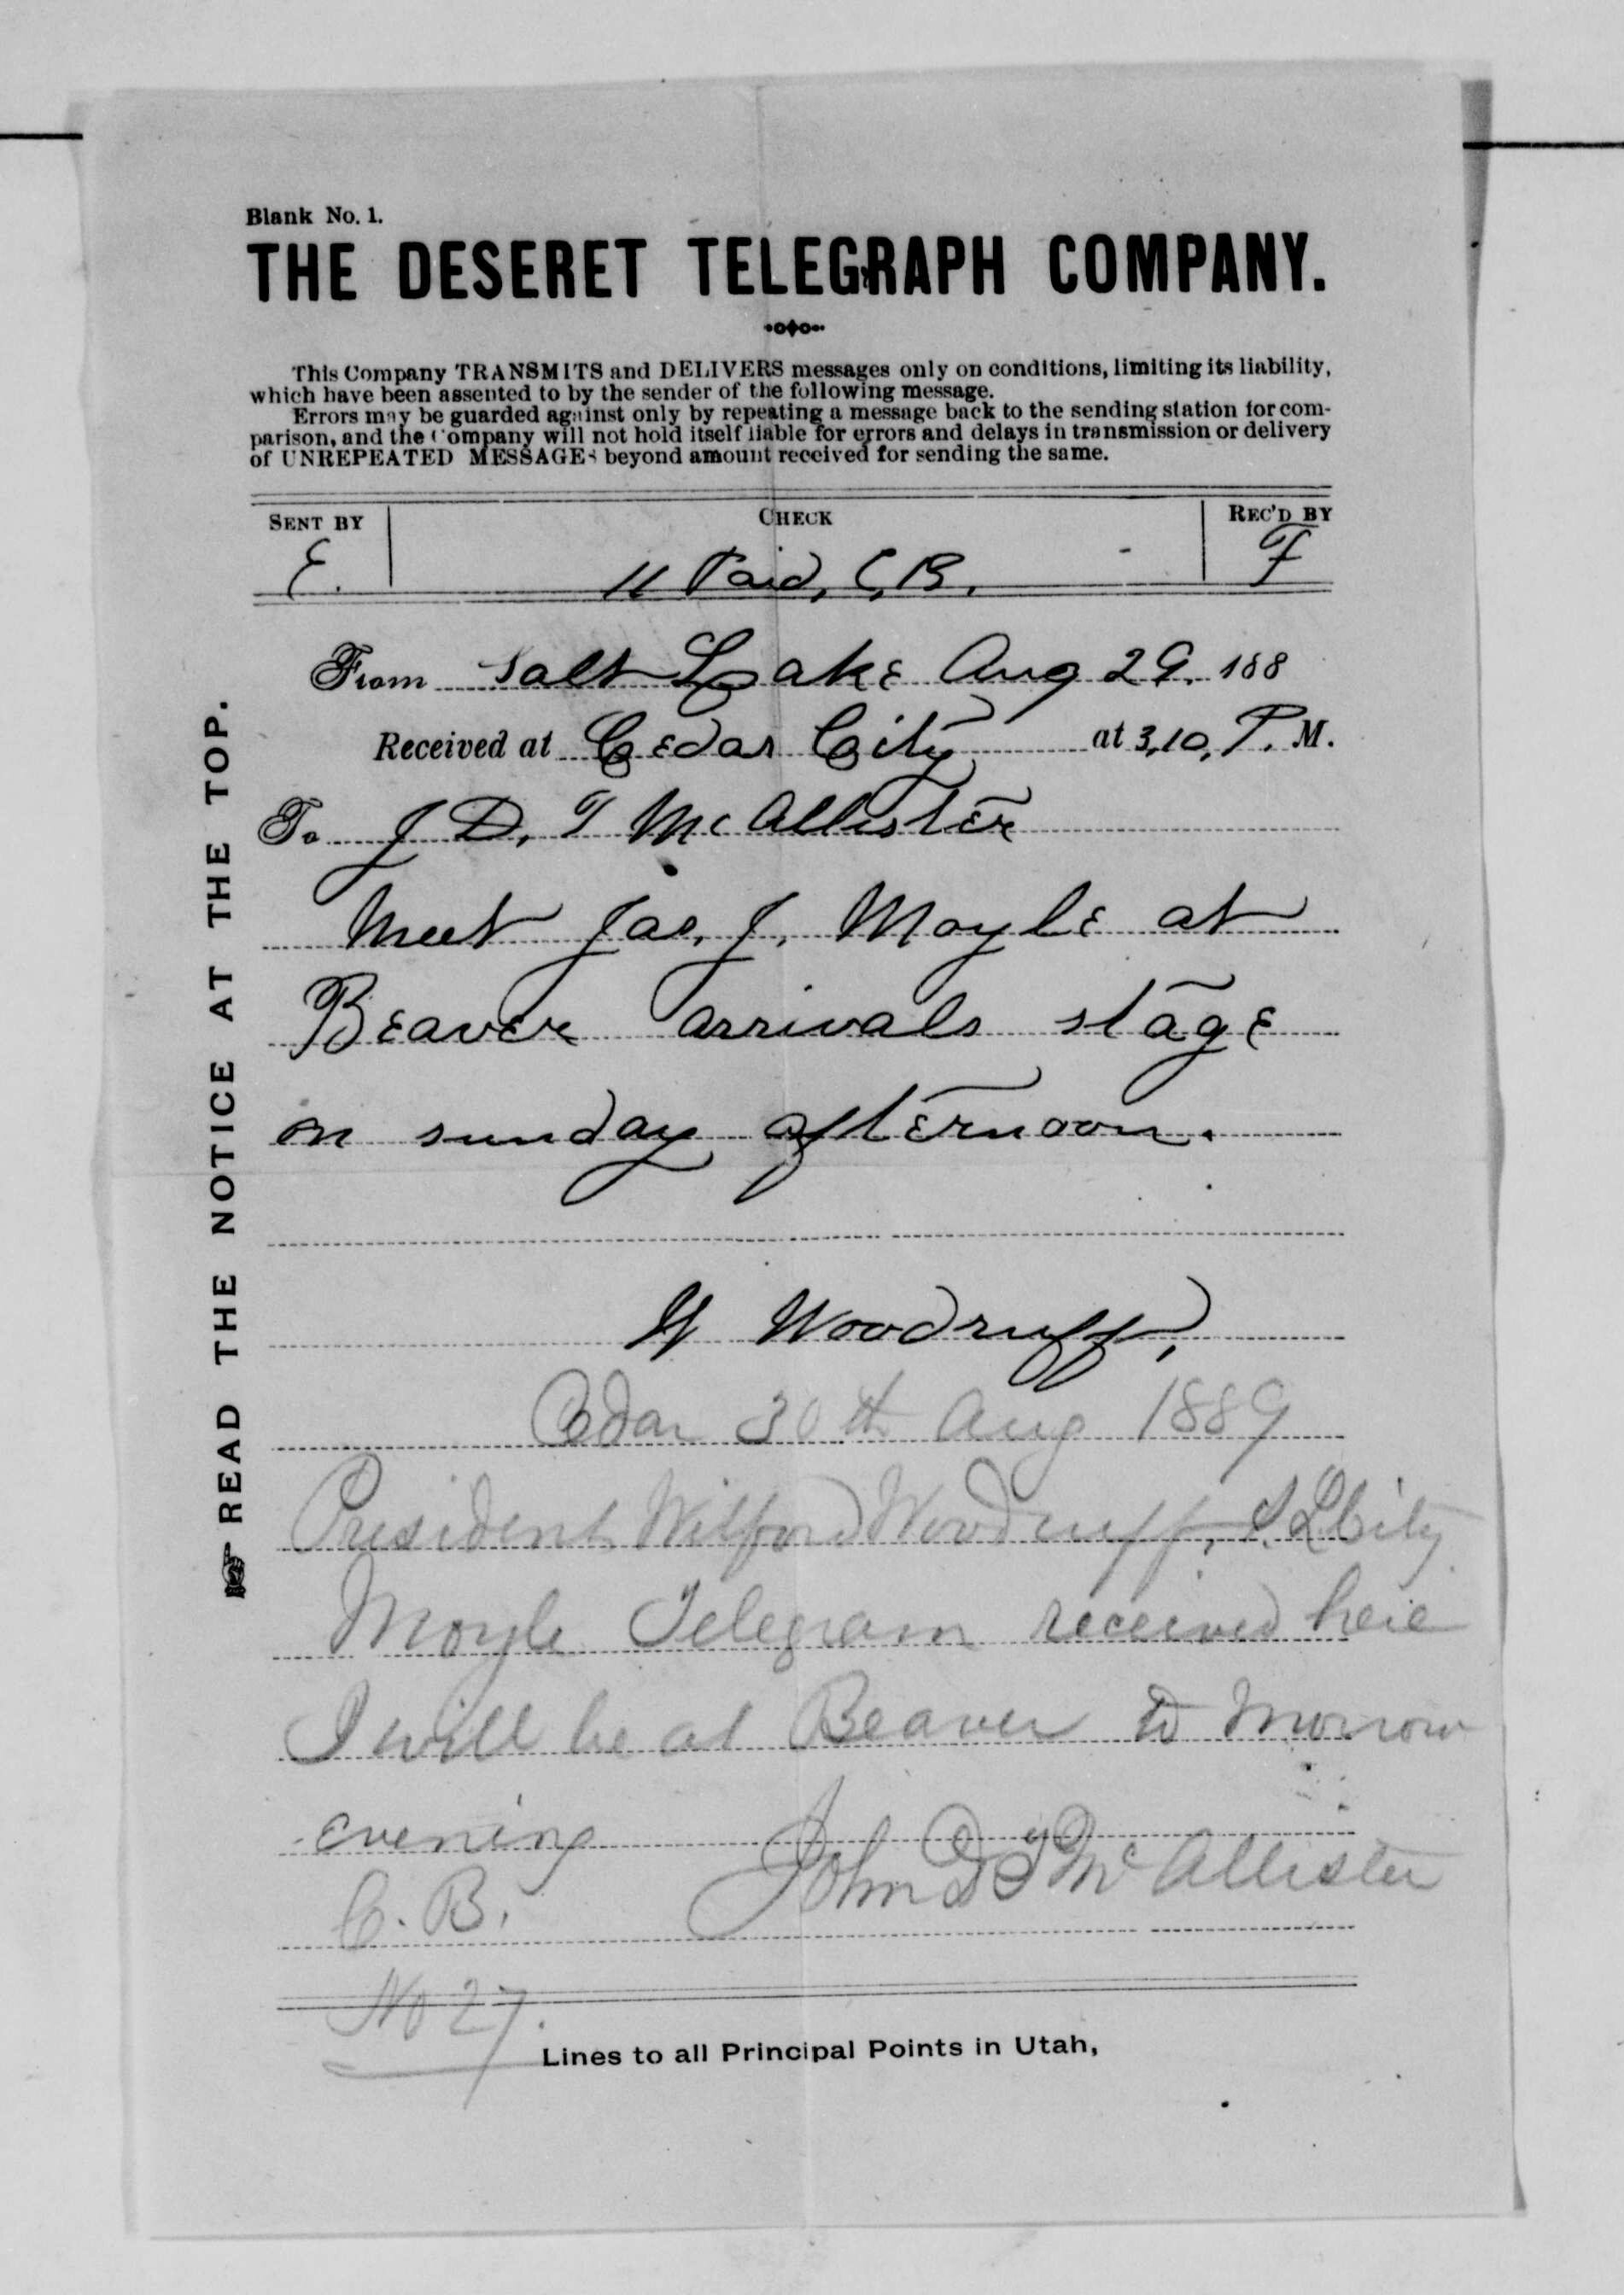 Blank No. 1.
THE DESERET TELEGRAPH COMPANY.
This Company TRANSMITS and DELIVERS messages only on conditions, limiting its liability,
which have been assented to by the sender of the following message.
Errors may be guarded against only by repeating a message back to the sending station for com-
parison, and the Company will not hold itself liable for errors and delays in transmission or delivery
of UNREPEATED MESSAGES beyond amount received for sending the same.
SENT BY CHECK REC'D BY
E. 11 Paid, C,B, F
From Salt Lake Aug 29. 188
Received at Cedar City at 3,10, P. M.
To J D, T McAllister
Meet Jas, J, Moyle at
Beaver arrivals stage
on sunday afternoon.
W Woodruff,
Cedar 30th Aug 1889
President Wilford Woodruff, S. L City
Moyle Telegram received here
I will be at Beaver to morrow
evening
John D T McAllister
C. B.
No 27.
Lines to all Principal Points in Utah,
READ THE NOTICE AT THE TOP.